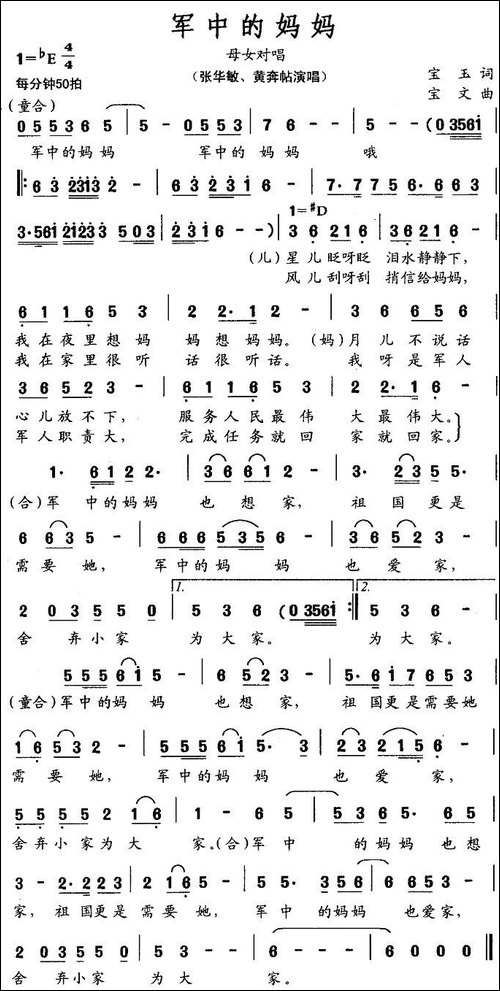 军中的妈妈
1=♭E 4/4
母女对唱
每分钟50拍
（张华敏、黄奔帖演唱）
宝玉词
宝文曲
（童合）
0 5 5 3 6 5 | 5 - 0 5 5 3 | 7 6 - - | 5 - - (0 3561
军中的妈妈 军中的妈妈 哦
6 3 23132 - | 6 3 2 3 1 6 - | 7· 7 7 5 6· 6 6 3 |
1=♯D
3·561 21233 5 0 3 | 2 3 1 6 - - ) | 3 6 2 1 6 - | 3 6 2 1 6 -
（儿）星儿眨呀眨 泪水静静下，
风儿刮呀刮 捎信给妈妈，
6 1 1 6 5 3 | 2 2· 1 2 - | 3 6 6 5 6
我在夜里想妈 妈想妈妈。（妈）月儿不说话
我在家里很听 话很听话。 我呀是军人
3 6 5 2 3 - | 6 1 1 6 5 3 | 2 2· 1 6 -
心儿放不下， 服务人民最伟 大最伟大。
军人职责大， 完成任务就回 家就回家。
1· 6 1 2 2· | 3 6 6 1 2 - | 3· 2 3 5 5·
（合）军中的妈妈 也想家， 祖国更是
6 6 3 5 - | 6 6 6 5 3 5 - | 3 6 5 2 3 -
需要她， 军中的妈妈 也爱家，
1. 2.
2 0 3 5 5 0 | 5 3 6 (0 3561 :‖ 5 3 6 -
舍弃小家 为大家。 为大家。
5 5 5 6 1 5 - | 6 5 2 3 - | 5· 6 1 7 6 5 3
（童合）军中的妈妈 也想家， 祖国更是需要她
1 6 5 3 2 - | 5 5 5 6 1 5· 3 | 2 3 2 1 5 6 -
需要她， 军中的妈妈 也爱家，
5 5 5 5 5 2 1 6 | 1 - 6 5 | 5 3 6 5· 6 5
舍弃小家为大家。（合）军中 的妈妈也想
3 - 2· 2 2 3 | 2 1 6 5 - | 5 5· 3 5 6 | 6 6 5 3 -
家，祖国更是需要她， 军中的妈妈 也爱家，
2 0 3 5 5 0 | 5 3 - - | 6 - - - | 6 0 0 0
舍弃小家 为大 家。